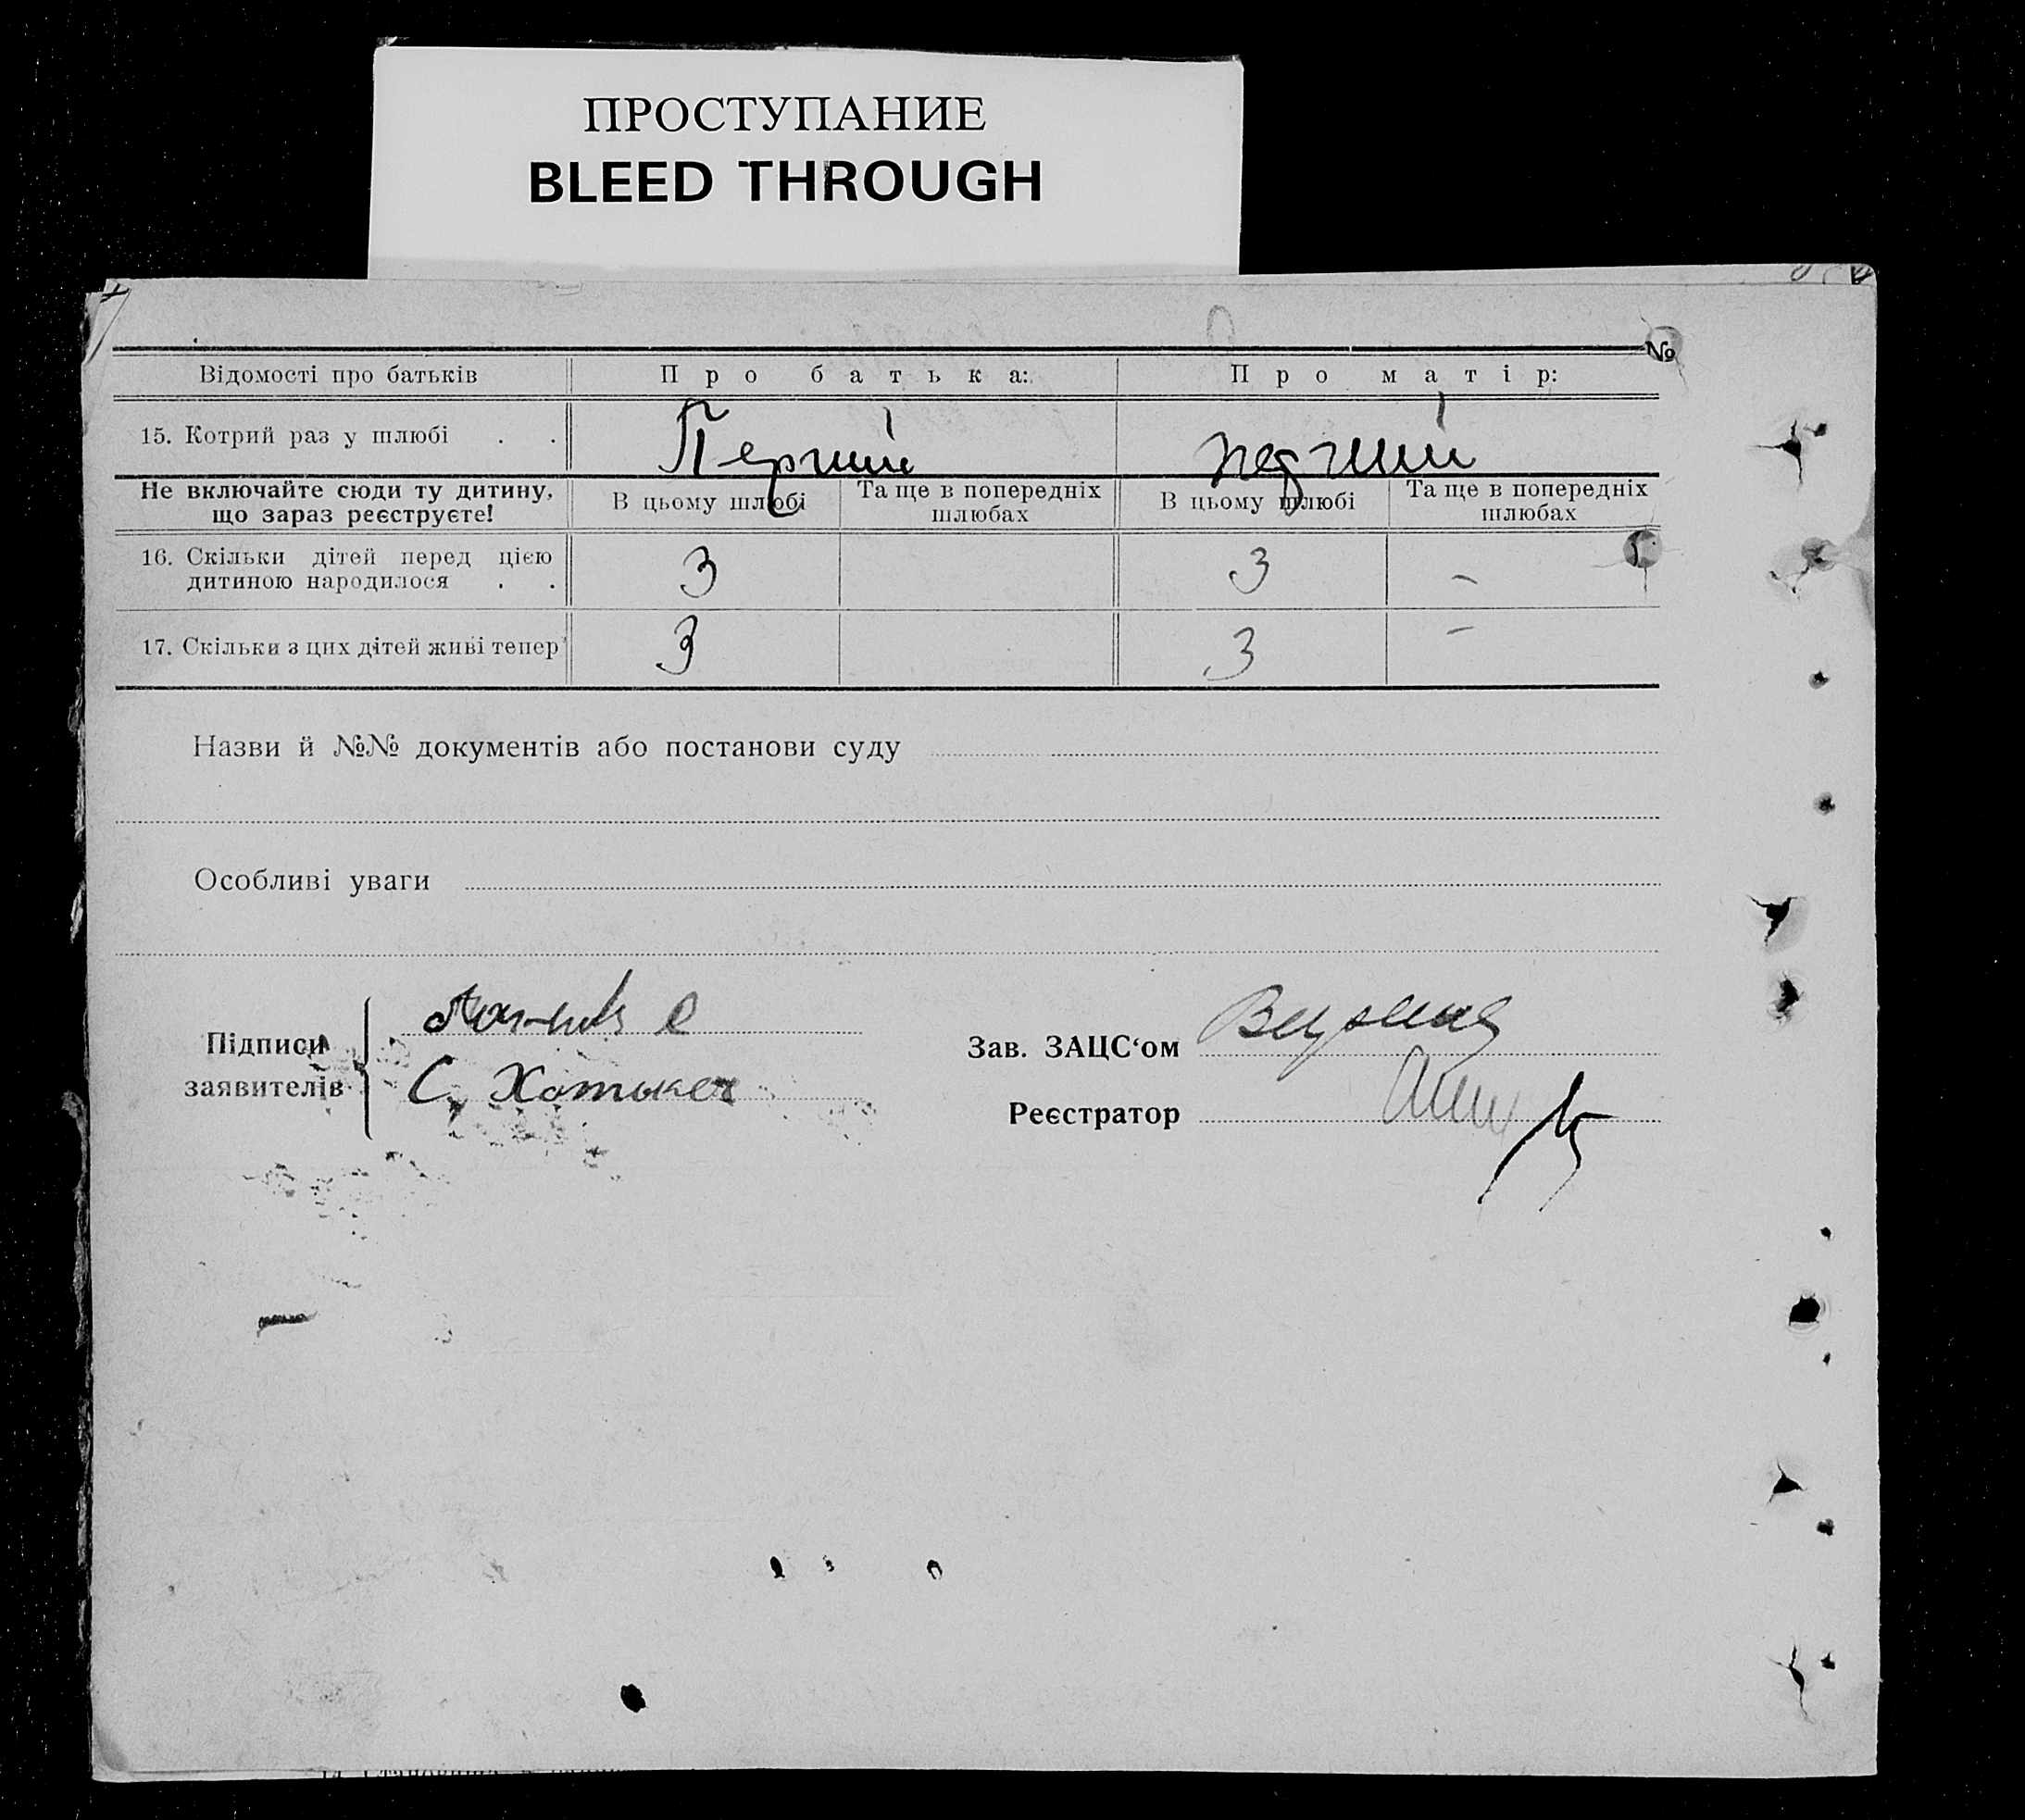 ПРОСТУПАНИЕ
BLEED THROUGH
№
Відомості про батьків Про батька: Про матір:
15. Котрий раз у шлюбі . . Перший перший
Не включайте сюди ту дитину, що зараз реєструєте! В цьому шлюбі Та ще в попередніх шлюбах В цьому шлюбі Та ще в попередніх шлюбах
16. Скільки дітей перед цією дитиною народилося . . 3 3 –
17. Скільки з цих дітей живі тепер 3 3 –
Назви й №№ документів або постанови суду
Особливі уваги
Підписи заявителів
С. Хотыкег
Зав. ЗАЦС‘ом
Реєстратор